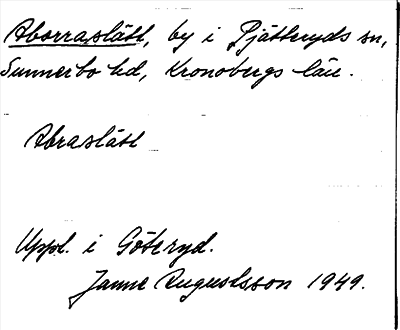 Aborraslätt, by i Pjätteryds sn,
Sunnerbo hd, Kronobergs län.
Abraslätt
Uppl. i Göteryd.
Janne Augustsson 1949.